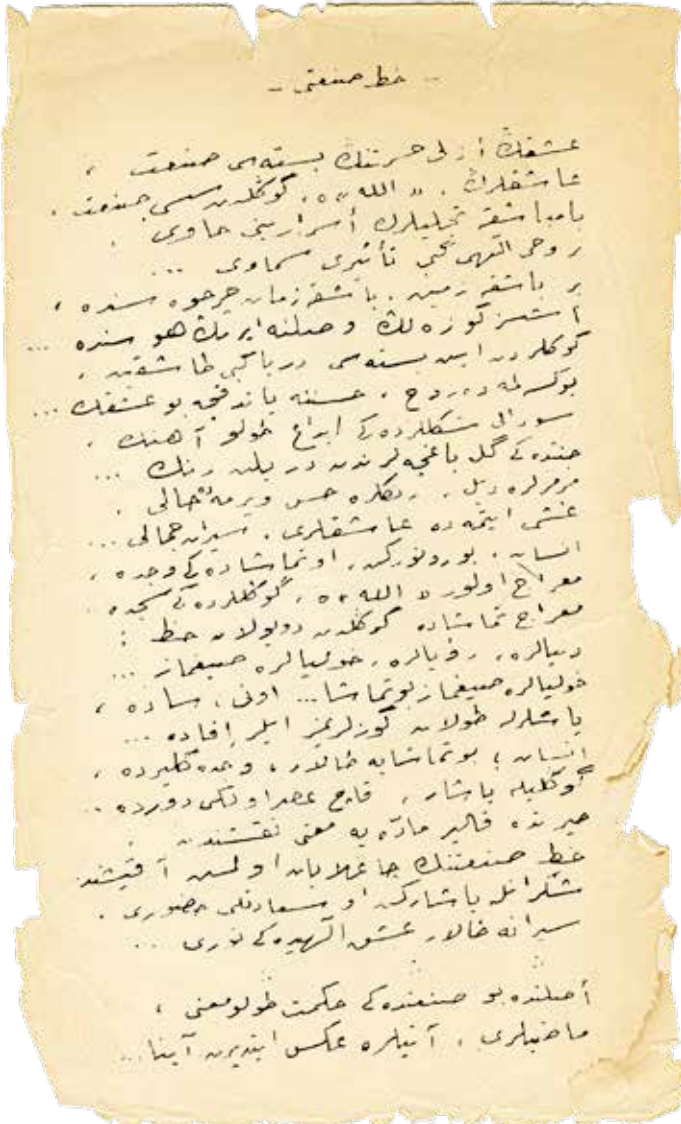 - خط صنعتی -
عشقڭ أزلی حسرتنڭ بسته سی صنعت ،
عاشقلرڭ . « الله » ه ، گوڭلدن سسی صنعت .
بامباشقه تجلیلرڭ أسرارینی حاوی .
روحی الهی کبی تأثیری سماوی ...
بر باشقه زمین . باشقه زمان چرچوه سنده ،
أشسز گوزه للڭ وصلنه ایرمڭ هو سنده ...
گوڭلردن اینن بسته سی دریا کبی طاشقین ،
یوکسلمه ده روح ، حسننه یاندقجه بو عشقڭ ...
سورال شکللرده کی ابداع طولو آهنڭ ،
جنتده کی گل باغچه لرندن دریلن رنڭ ...
مرمرلره دیل ، رنکلره حس ویرمه حالی .
غشی ایتمه ده عاشقلری . سیران جمالی ...
انسان . بورونورکن ، او تماشاده کی وجده ،
معراج اولور « الله » ه ، گوڭللرده کی سجده .
معراج تماشاده گوڭلدن دویولان حظ :
دنیالره ، رؤیالره ، خولیالره صیغماز ...
خولیالره صیغماز بو تماشا ... اونی ، ساده ،
یاشلرله طولان گوزلریمز ایلر إفاده ...
انسان ؛ بو تماشایه طالار ، وجده گلیرده ،
گوڭلیله یاشار ، قاچ عصر اولکی دورده ..
حیرتده قالیر ماده یه معنی نقشندن .
خط صنعتنڭ چاغلایان اولمسن آقیشندن
شکرانله یاشارکن او سعادتلی حضوری .
سیرانه طالار عشق الهیده کی نوری ...
أصلنده بو صنعتده کی حکمت طولو معنی ،
ماضیلری ، آتیلره عکس ایتدیرن آینا ...